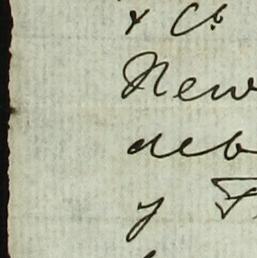 & Co
New
deb
y F